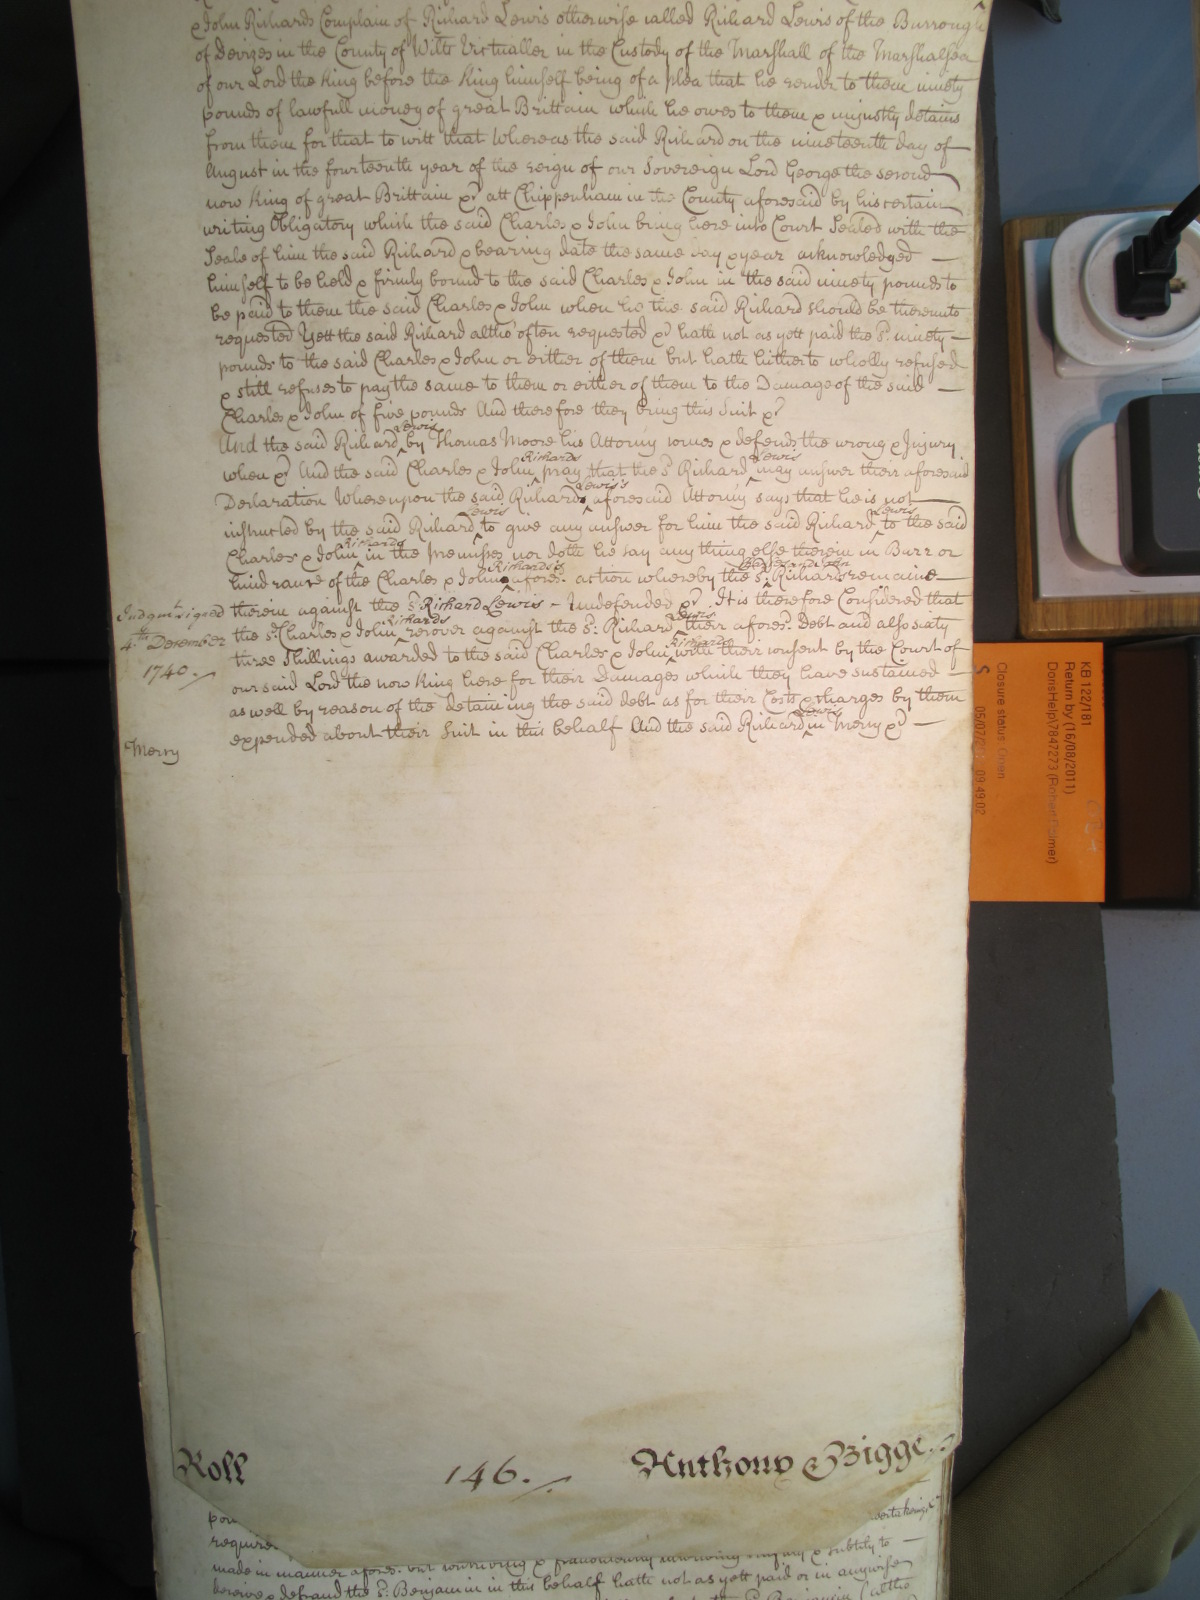 & John Richards Complain of Richard Lewis otherwise called Richard Lewis of the Burrough
of Devizes in the County of Wilts Victualler in the Custody of the Marshall of the Marshalsea
of our Lord the King before the King himself being of a plea that he render to them ninety
pounds of lawfull money of great Brittain which he owes to them & unjustly detains
from them for that to witt that Whereas the said Richard on the nineteenth day of
August in the fourteenth year of the reign of our Sovereign Lord George the second
now King of great Brittain &c att Chippenham in the County aforesaid by his certain
writing Obligatory which the said Charles & John bring here into Court Sealed with the
Seale of him the said Richard & bearing date the same day & year acknowledged
himself to be held & firmly bound to the said Charles & John in the said ninety pounds to
be paid to them the said Charles & John when he the said Richard should be thereunto
requested Yett the said Richard altho' often requested &c hath not as yett paid the sd. ninety
pounds to the said Charles & John or either of them but hath hitherto wholly refused
& still refuses to pay the same to them or either of them to the Damage of the said
Charles & John of five pounds And therefore they bring this Suit &c
And the said Richard Lewis by Thomas Moore his Attorny comes & defends the wrong & Injury
when &c And the said Charles & John Richards pray that the sd. Richard Lewis may answer their aforesaid
Declaration Whereupon the said Richard Lewis's aforesaid Attorny says that he is not
instructed by the said Richard Lewis to give any answer for him the said Richard Lewis to the said
Charles & John Richards in the Premisses nor doth he say any thing else therein in Barr or
hindrance of the Charles & John Richards's afores. action whereby the sd. Richards remaine
therein against the sd. Richard Lewis Undefended &c. It is therefore Considered that
the sd. Charles & John Richards recover against the sd. Richard Lewis their afores. Debt and also sixty
three Shillings awarded to the said Charles & John Richards with their consent by the Court of
our said Lord the now King here for their Damages which they have sustained
as well by reason of the detaining the said debt as for their Costs & charges by them
expended about their Suit in this behalf And the said Richard Lewis in Mercy &c
Judgmt. signed
4th December
1740.
Mercy
Roll 146. Anthony Bigge
require
made in manner afores. but contriving & fraudulently intending & subtily to
deceive & defraud the sd. Benjamin in this behalf hath not as yett paid or in anywise
KB 122/181
Return by (16/08/2011)
DorisHelp\7847273 (Robert Palmer)
Closure status: Open
S 05/07/ 09:49:02